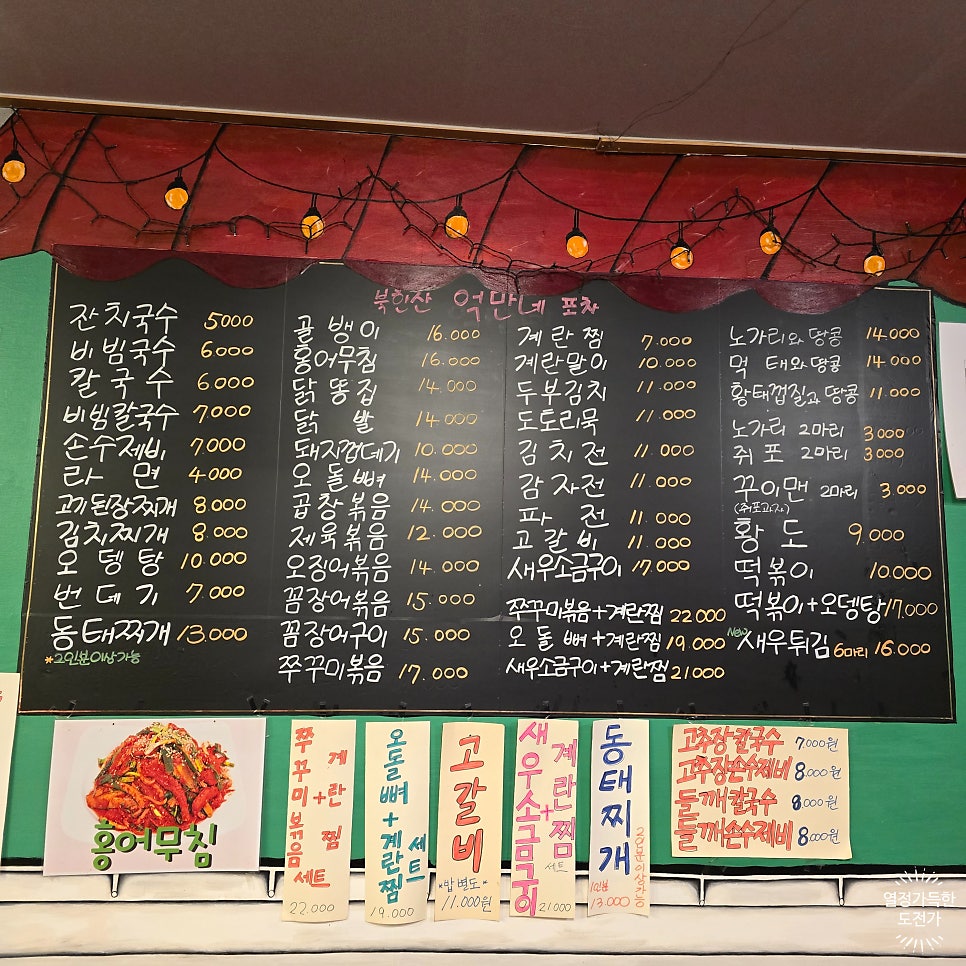 북한산 억만네 포차
잔치국수 5000
비빔국수 6.000
칼국수 6.000
비빔칼국수 7.000
손수제비 7.000
라면 4.000
고기된장찌개 8.000
김치찌개 8.000
오뎅탕 10.000
번데기 7.000
동태찌개 13.000
*2인분이상가능
골뱅이 16.000
홍어무침 16.000
닭똥집 14.000
닭발 14.000
돼지껍데기 10.000
오돌뼈 14.000
곱창볶음 14.000
제육볶음 12.000
오징어볶음 14.000
꼼장어볶음 15.000
꼼장어구이 15.000
쭈꾸미볶음 17.000
계란찜 7.000
계란말이 10.000
두부김치 11.000
도토리묵 11.000
김치전 11.000
감자전 11.000
파전 11.000
고갈비 11.000
새우소금구이 17.000
쭈꾸미볶음+계란찜 22.000
오돌뼈+계란찜 19.000
새우소금구이+계란찜 21.000
노가리와 땅콩 14.000
먹태와땅콩 14.000
황태껍질과 땅콩 11.000
노가리 2마리 3000
쥐포 2마리 3000
꾸이맨 2마리 3.000
(쥐포과자)
황도 9.000
떡볶이 10.000
떡볶이+오뎅탕 17.000
New 새우튀김 6마리 16.000
홍어무침
쭈꾸미볶음+계란찜 세트
22.000
오돌뼈+계란찜 세트
19.000
고갈비
*밥별도*
11.000원
새우소금구이+계란찜 세트
21000
동태찌개
2인분이상가능
1인분
13.000
고추장칼국수 7.000원
고추장손수제비 8.000원
들깨칼국수 8.000원
들깨손수제비 8000원
열정가득한
도전가